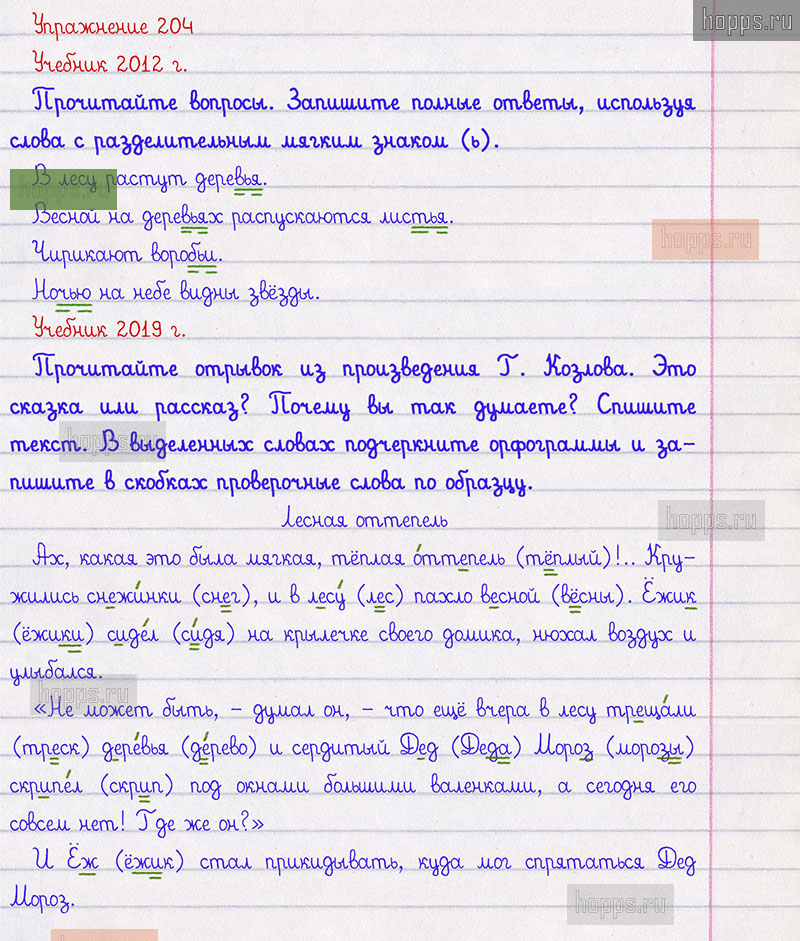 hopps.ru
Упражнение 204
Учебник 2012 г.
Прочитайте вопросы. Запишите полные ответы, используя
слова с разделительным мягким знаком (ь).
В лесу растут деревья.
hopps.ru
Весной на деревьях распускаются листья.
hopps.ru
Чирикают воробьи.
Ночью на небе видны звёзды.
Учебник 2019 г.
Прочитайте отрывок из произведения Г. Козлова. Это
сказка или рассказ? Почему вы так думаете? Спишите
текст. В выделенных словах подчеркните орфограммы и за-
hopps.ru
пишите в скобках проверочные слова по образцу.
Лесная оттепель
hopps.ru
Ах, какая это была мягкая, тёплая о́ттепель (тёплый)!.. Кру-
жились снежи́нки (снег), и в лесу́ (лес) пахло весной (вёсны). Ёжик
(ёжики) сиде́л (си́дя) на крылечке своего домика, нюхал воздух и
улыбался.
hopps.ru
«Не может быть, – думал он, – что ещё вчера в лесу треща́ли
(треск) дере́вья (де́рево) и сердитый Дед (Деда) Мороз (морозы)
скрипе́л (скрип) под окнами большими валенками, а сегодня его
совсем нет! Где же он?»
И Ёж (ёжик) стал прикидывать, куда мог спрятаться Дед
Мороз.
hopps.ru